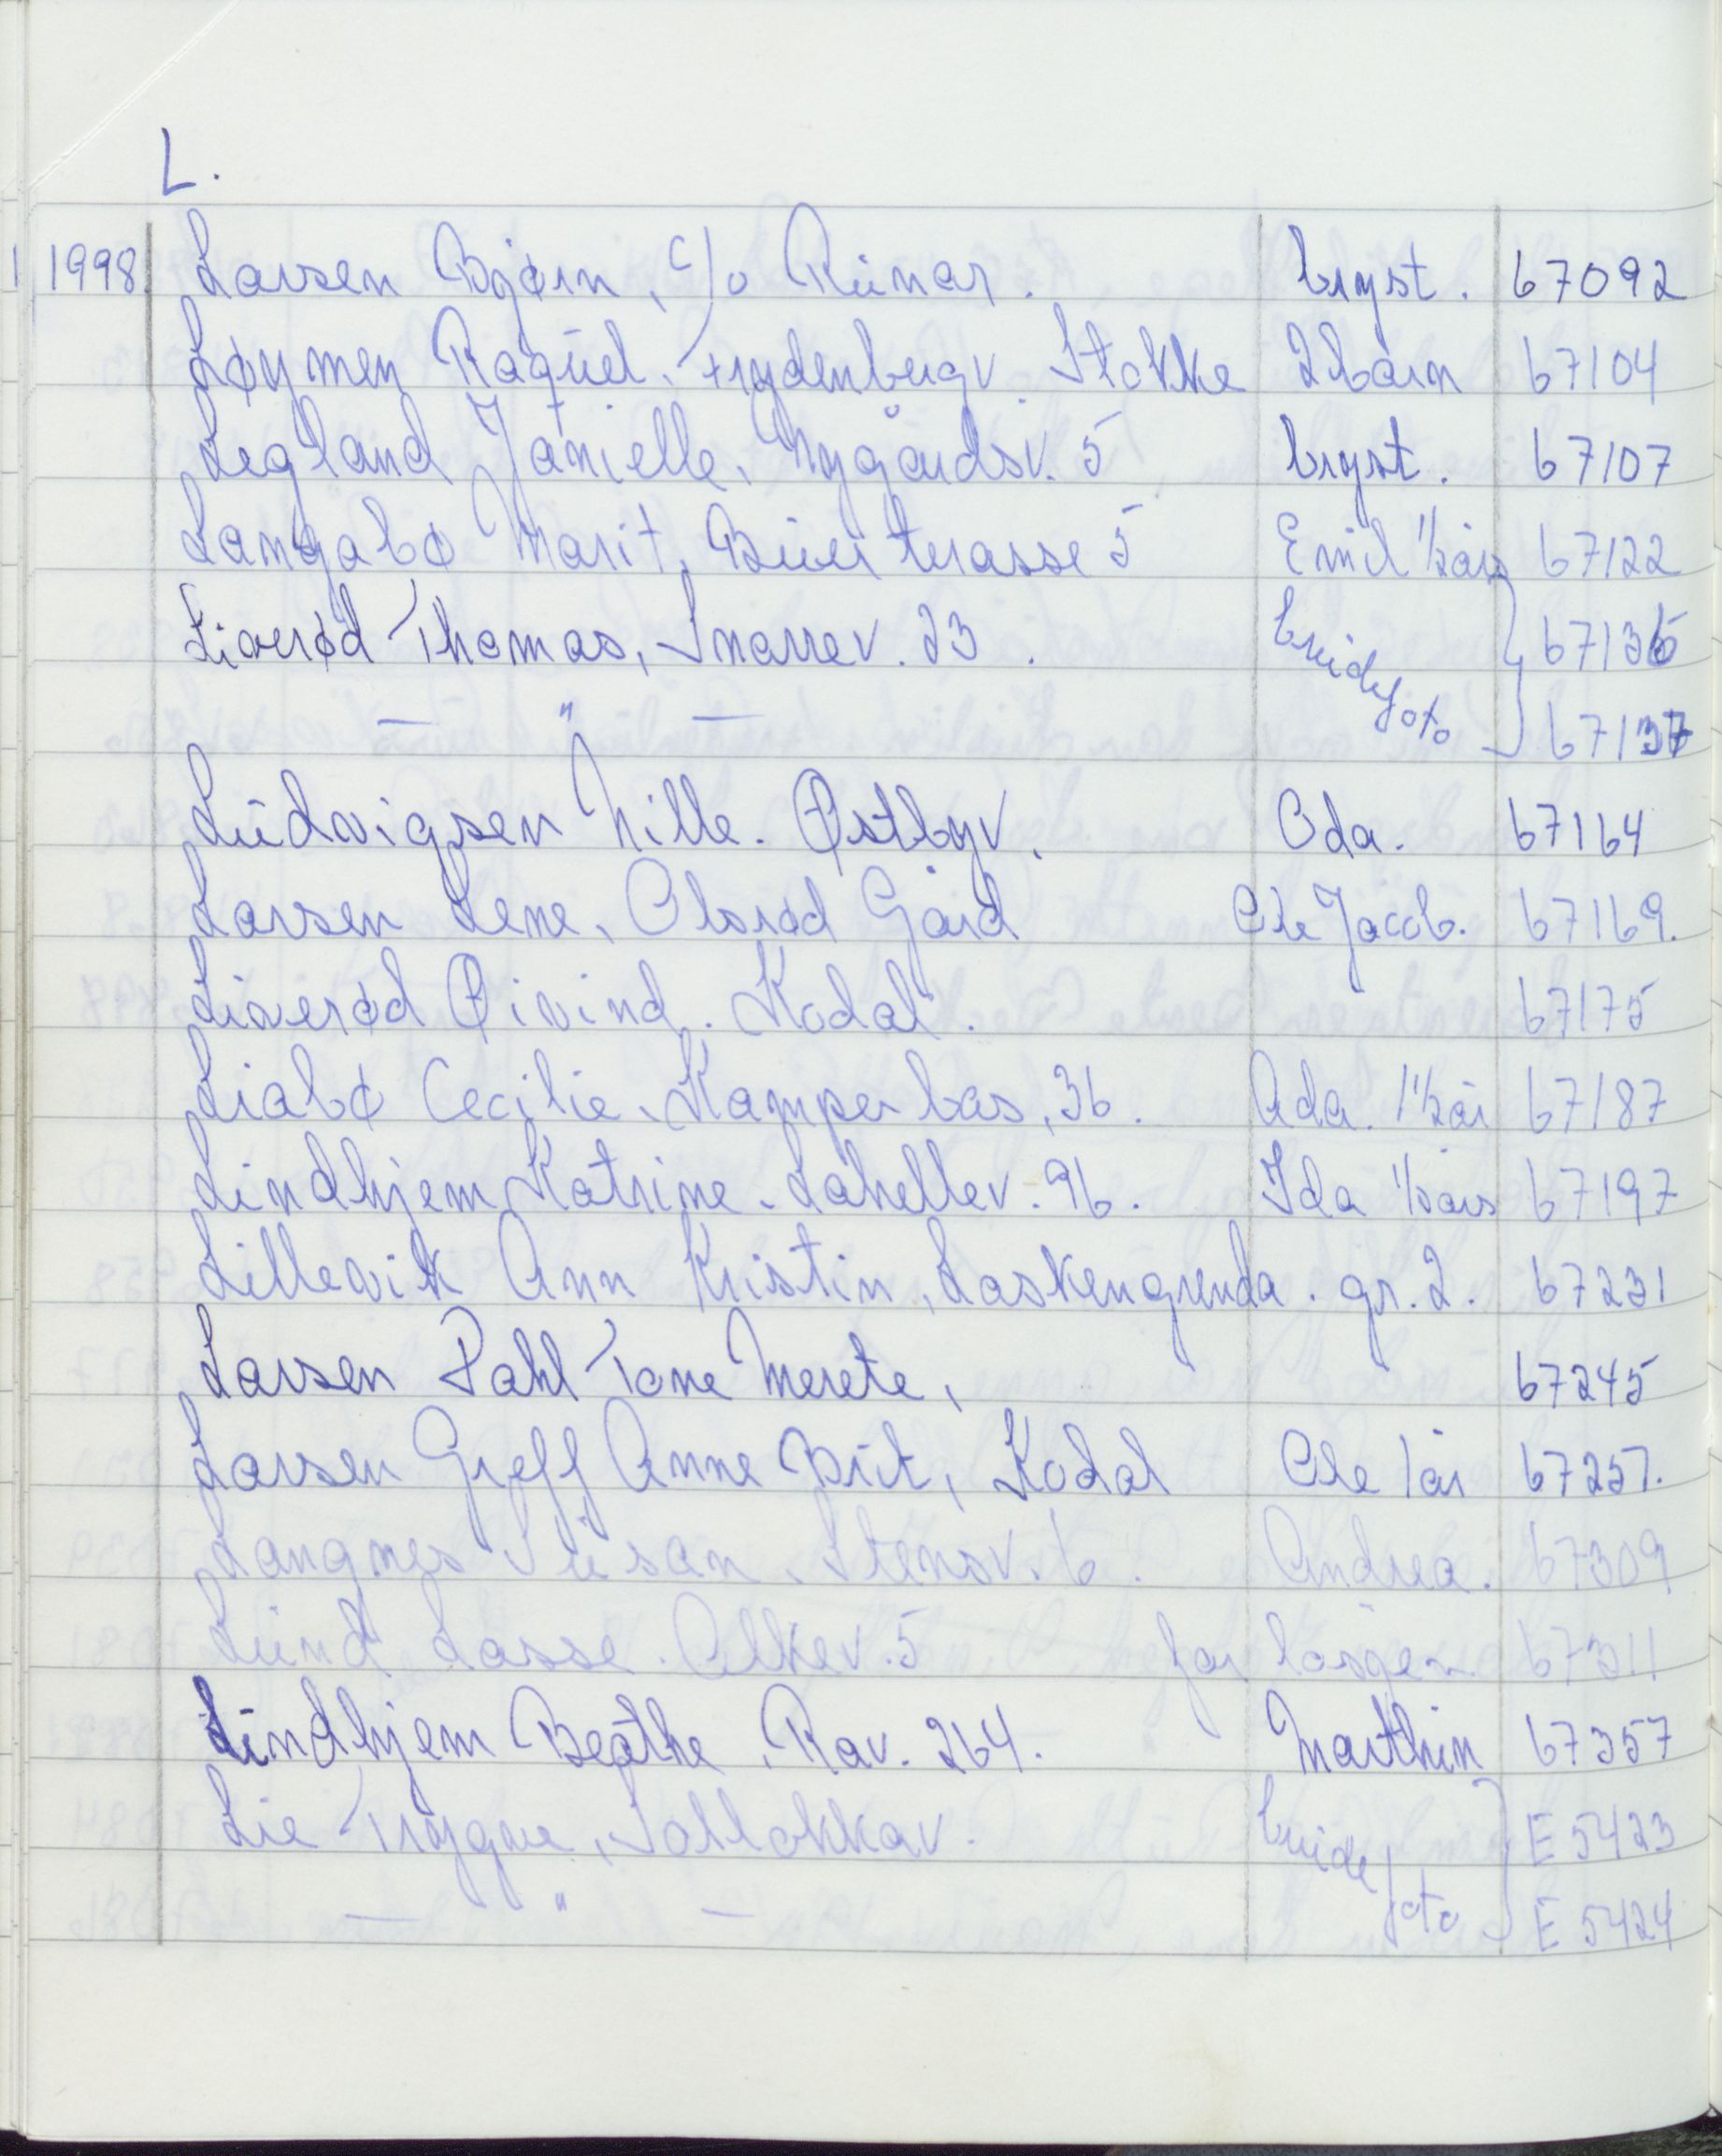 L.
1998. Larsen Bjørn, c/o Runar. bryst. 67092
Løymen Raquel. Frydenbergv. Stokke 2 barn 67104
Legland Janielle, Nygårdsv. 5 bryst. 67107
Langabø Marit, Buer terasse 5 Emil 1/2 års 67122
Liverød Thomas, Snarrev. 23. brudefoto 67136
— " — 67137
Ludvigsen Nille. Østbyv. Oda. 67164
Larsen Lene, Olsrød Gård Ole Jacob. 67169.
Liverød Øivind. Kodal. 67175
Liabø Cecilie. Kamperbas, 36. Ada. 1 1/2 år 67187
Lindhjem Katrine. Lahellev. 96. Ida 1/2 års 67197
Lillevik Ann Kristin, Laskengrenda. gr. 2. 67231
Larsen Dahl Tone Merete, 67245
Larsen Greff Anne Brit, Kodal Ole 1 år 67257.
Langnes Susan. Stensv. 6. Andrea. 67309
Lund Lasse. Alkev. 5 far 67311
Lindhjem Beathe. Rav. 264. Marthin 67357
Lie Trygve, Sollokkav. brudefoto E 5423
— " — E 5424